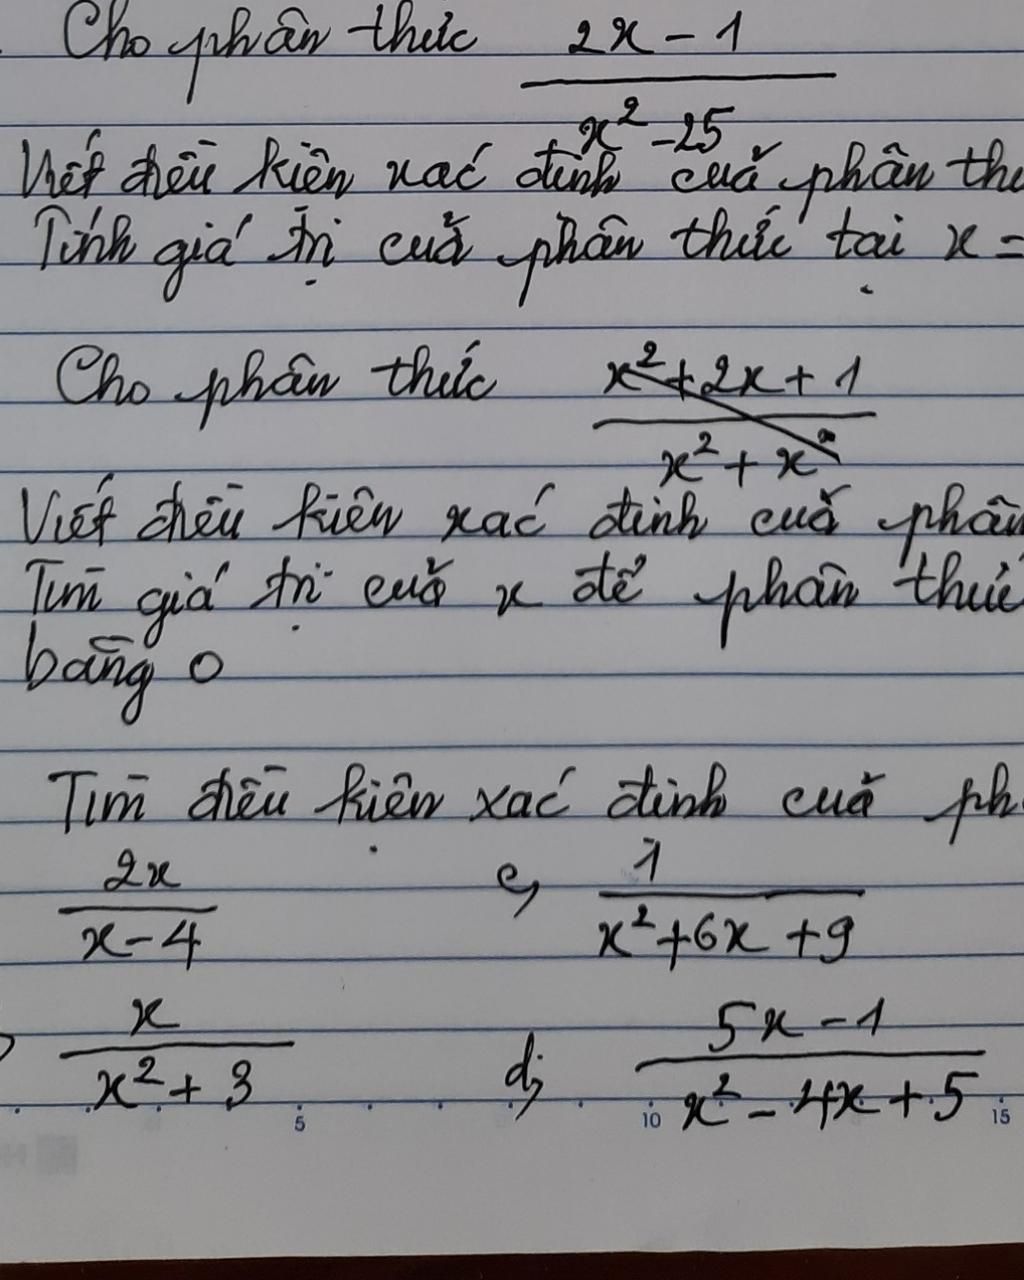 Cho phân thức 2x - 1
x² - 25
Viết điều kiện xác định của phân th
Tính giá trị của phân thức tại x =
Cho phân thức x² + 2x + 1
x² + x
Viết điều kiện xác định của phân
Tìm giá trị của x để phân thức
bằng 0
Tìm điều kiện xác định của ph
2x c, 1
x - 4 x² + 6x + 9
x 5x - 1
x² + 3 d, x² - 4x + 5
5 10 15